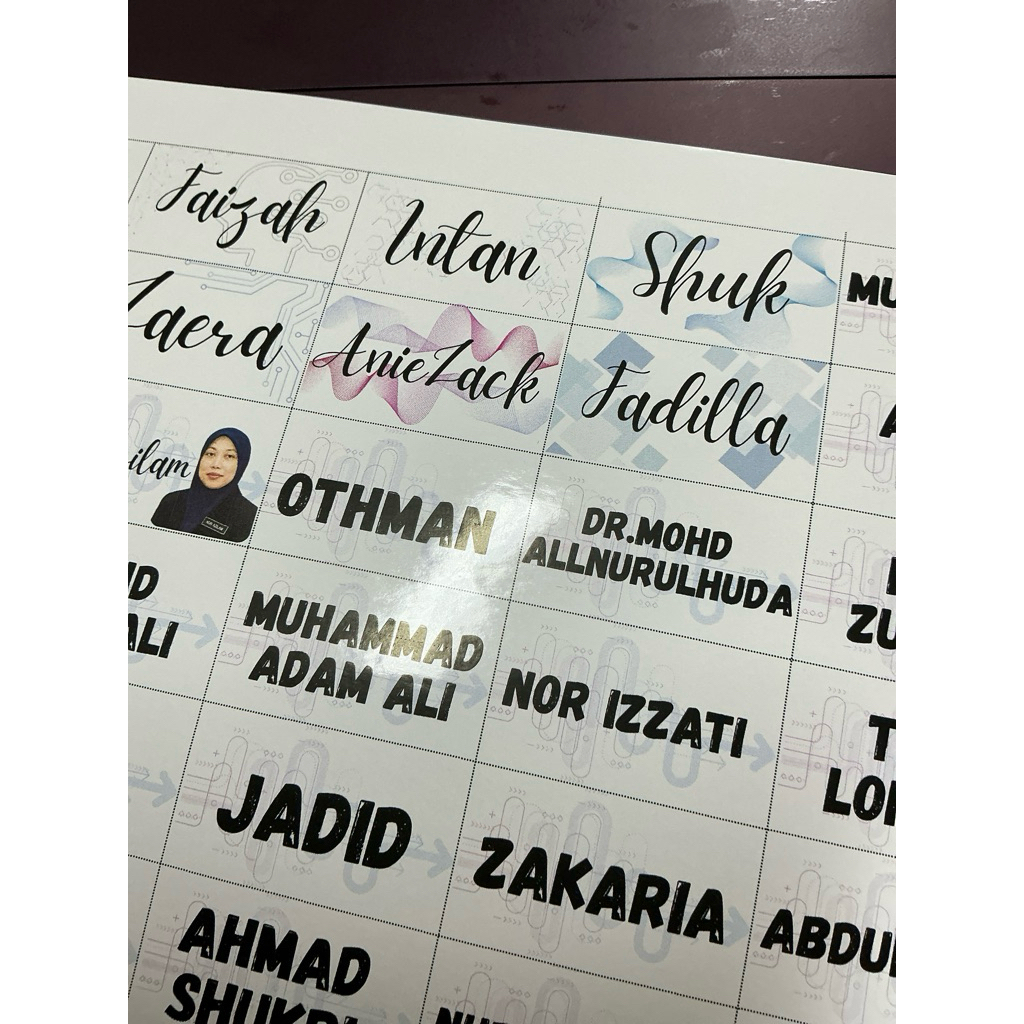 Faizah
Intan
Shuk
MU
Zaera
AnieZack
Fadilla
A
ilam
OTHMAN
DR.MOHD
ALLNURULHUDA
ZU
ALI
MUHAMMAD
ADAM ALI
NOR IZZATI
T
LO
JADID
ZAKARIA
ABDU
AHMAD
SHUKRI